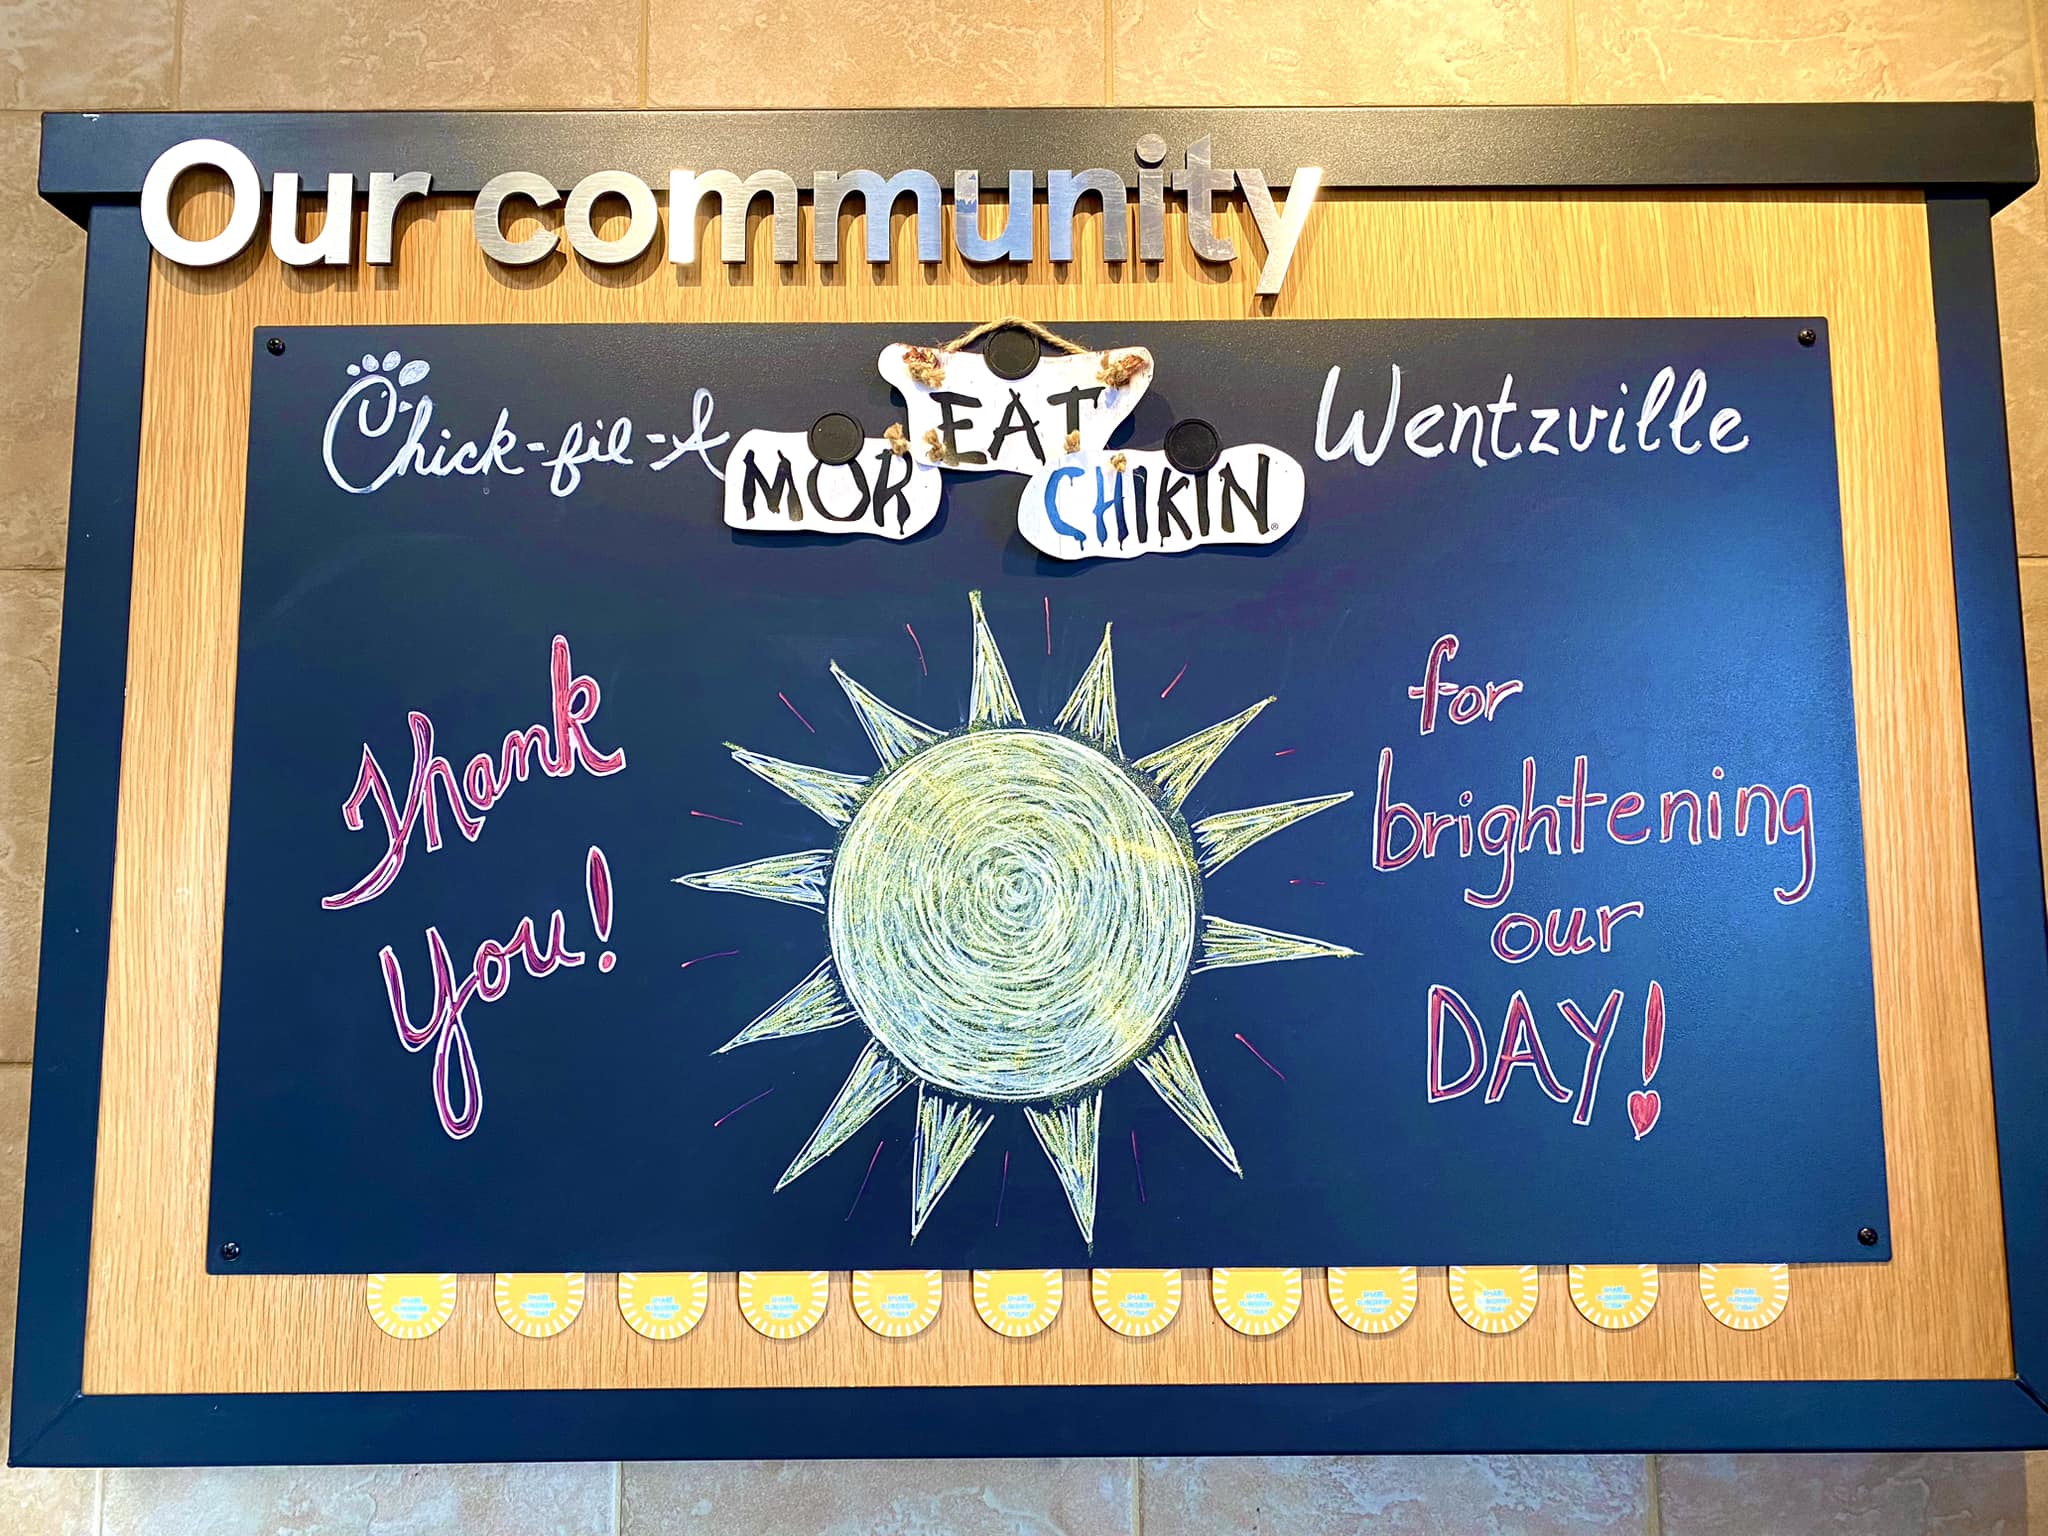 Our community
Chick-fil-A
EAT
MOR
CHIKIN®
Wentzville
Thank
you!
for
brightening
our
DAY!